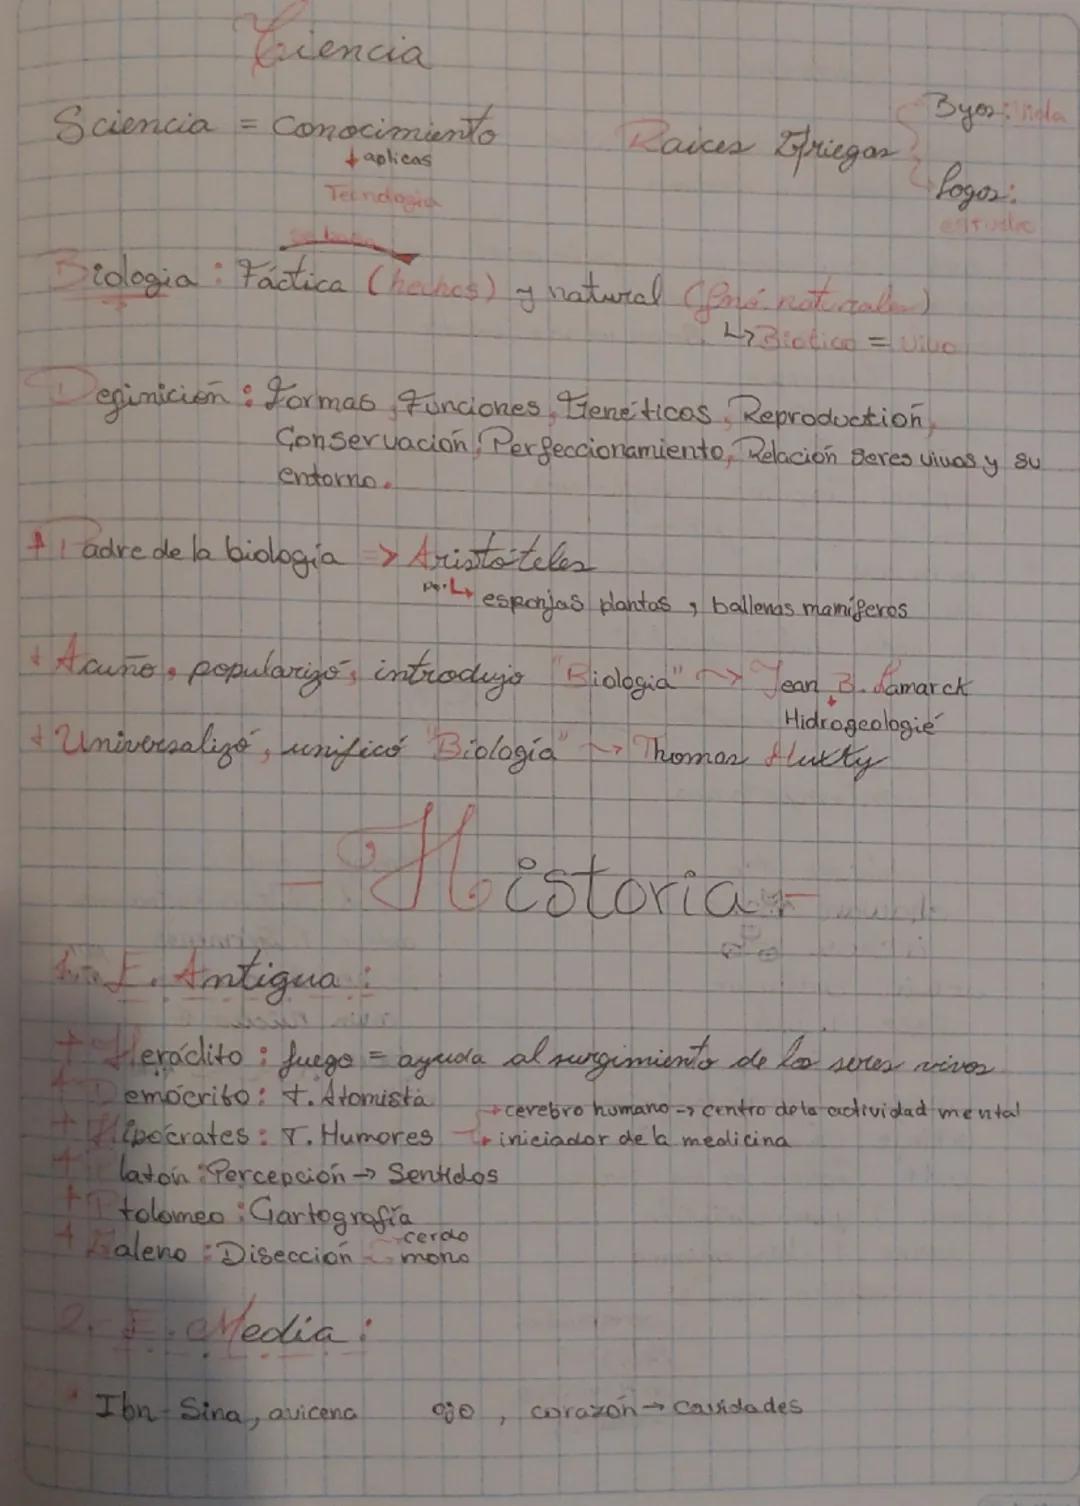 Ciencia
Sciencia = Conocimiento
↓ aplicas
Tecnología
Raíces Griegas
Byos: vida
Logos:
estudio
se basa
Biología: Fáctica (hechos) y natural (fenó. naturales)
↳ Biótico = vivo
Definición: Formas, Funciones, Genéticos, Reproducction,
Conservación, Perfeccionamiento, Relación seres vivos y su
entorno.
+ Padre de la biología => Aristóteles
por ↳ esponjas plantas, ballenas mamíferos
+ Acuño, popularizó, introdujo "Biología" ~> Jean B. Lamarck
↓
Hidrogeologié
+ Universalizó, unificó "Biología" ~> Thomas Huxty
- Historia -
1.- E. Antigua:
+ Heráclito: fuego = ayuda al surgimiento de los seres vivos
+ Demócrito: t. Atomista
→ cerebro humano -> centro de la actividad mental
+ Hipócrates: T. Humores → iniciador de la medicina
+ Platón: Percepción → Sentidos
+ Ptolomeo: Cartografía
+ Galeno: Disección cerdo
mono
2.- E. Media:
* Ibn-Sina, avicena ojo, corazón → cavidades